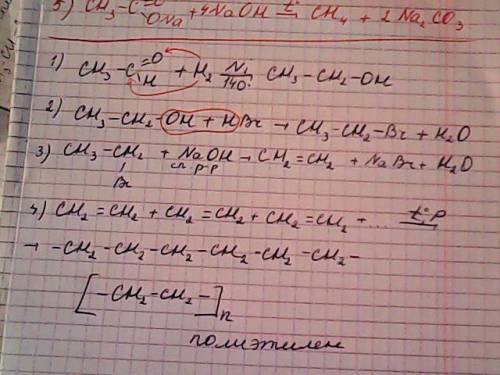 5) CH₃-C =O ONa + 4NaOH t° → CH₄ + 2 Na₂CO₃
1) CH₃-C =O H + H₂ Ni 140° CH₃-CH₂-OH
2) CH₃-CH₂-OH + HBr → CH₃-CH₂-Br + H₂O
3) CH₃-CH₂ + NaOH → CH₂=CH₂ + NaBr + H₂O
Br сп. р-р
4) CH₂=CH₂ + CH₂=CH₂ + CH₂=CH₂ + ... t° P
→ -CH₂-CH₂-CH₂-CH₂-CH₂-CH₂-
[-CH₂-CH₂-]n
полиэтилен